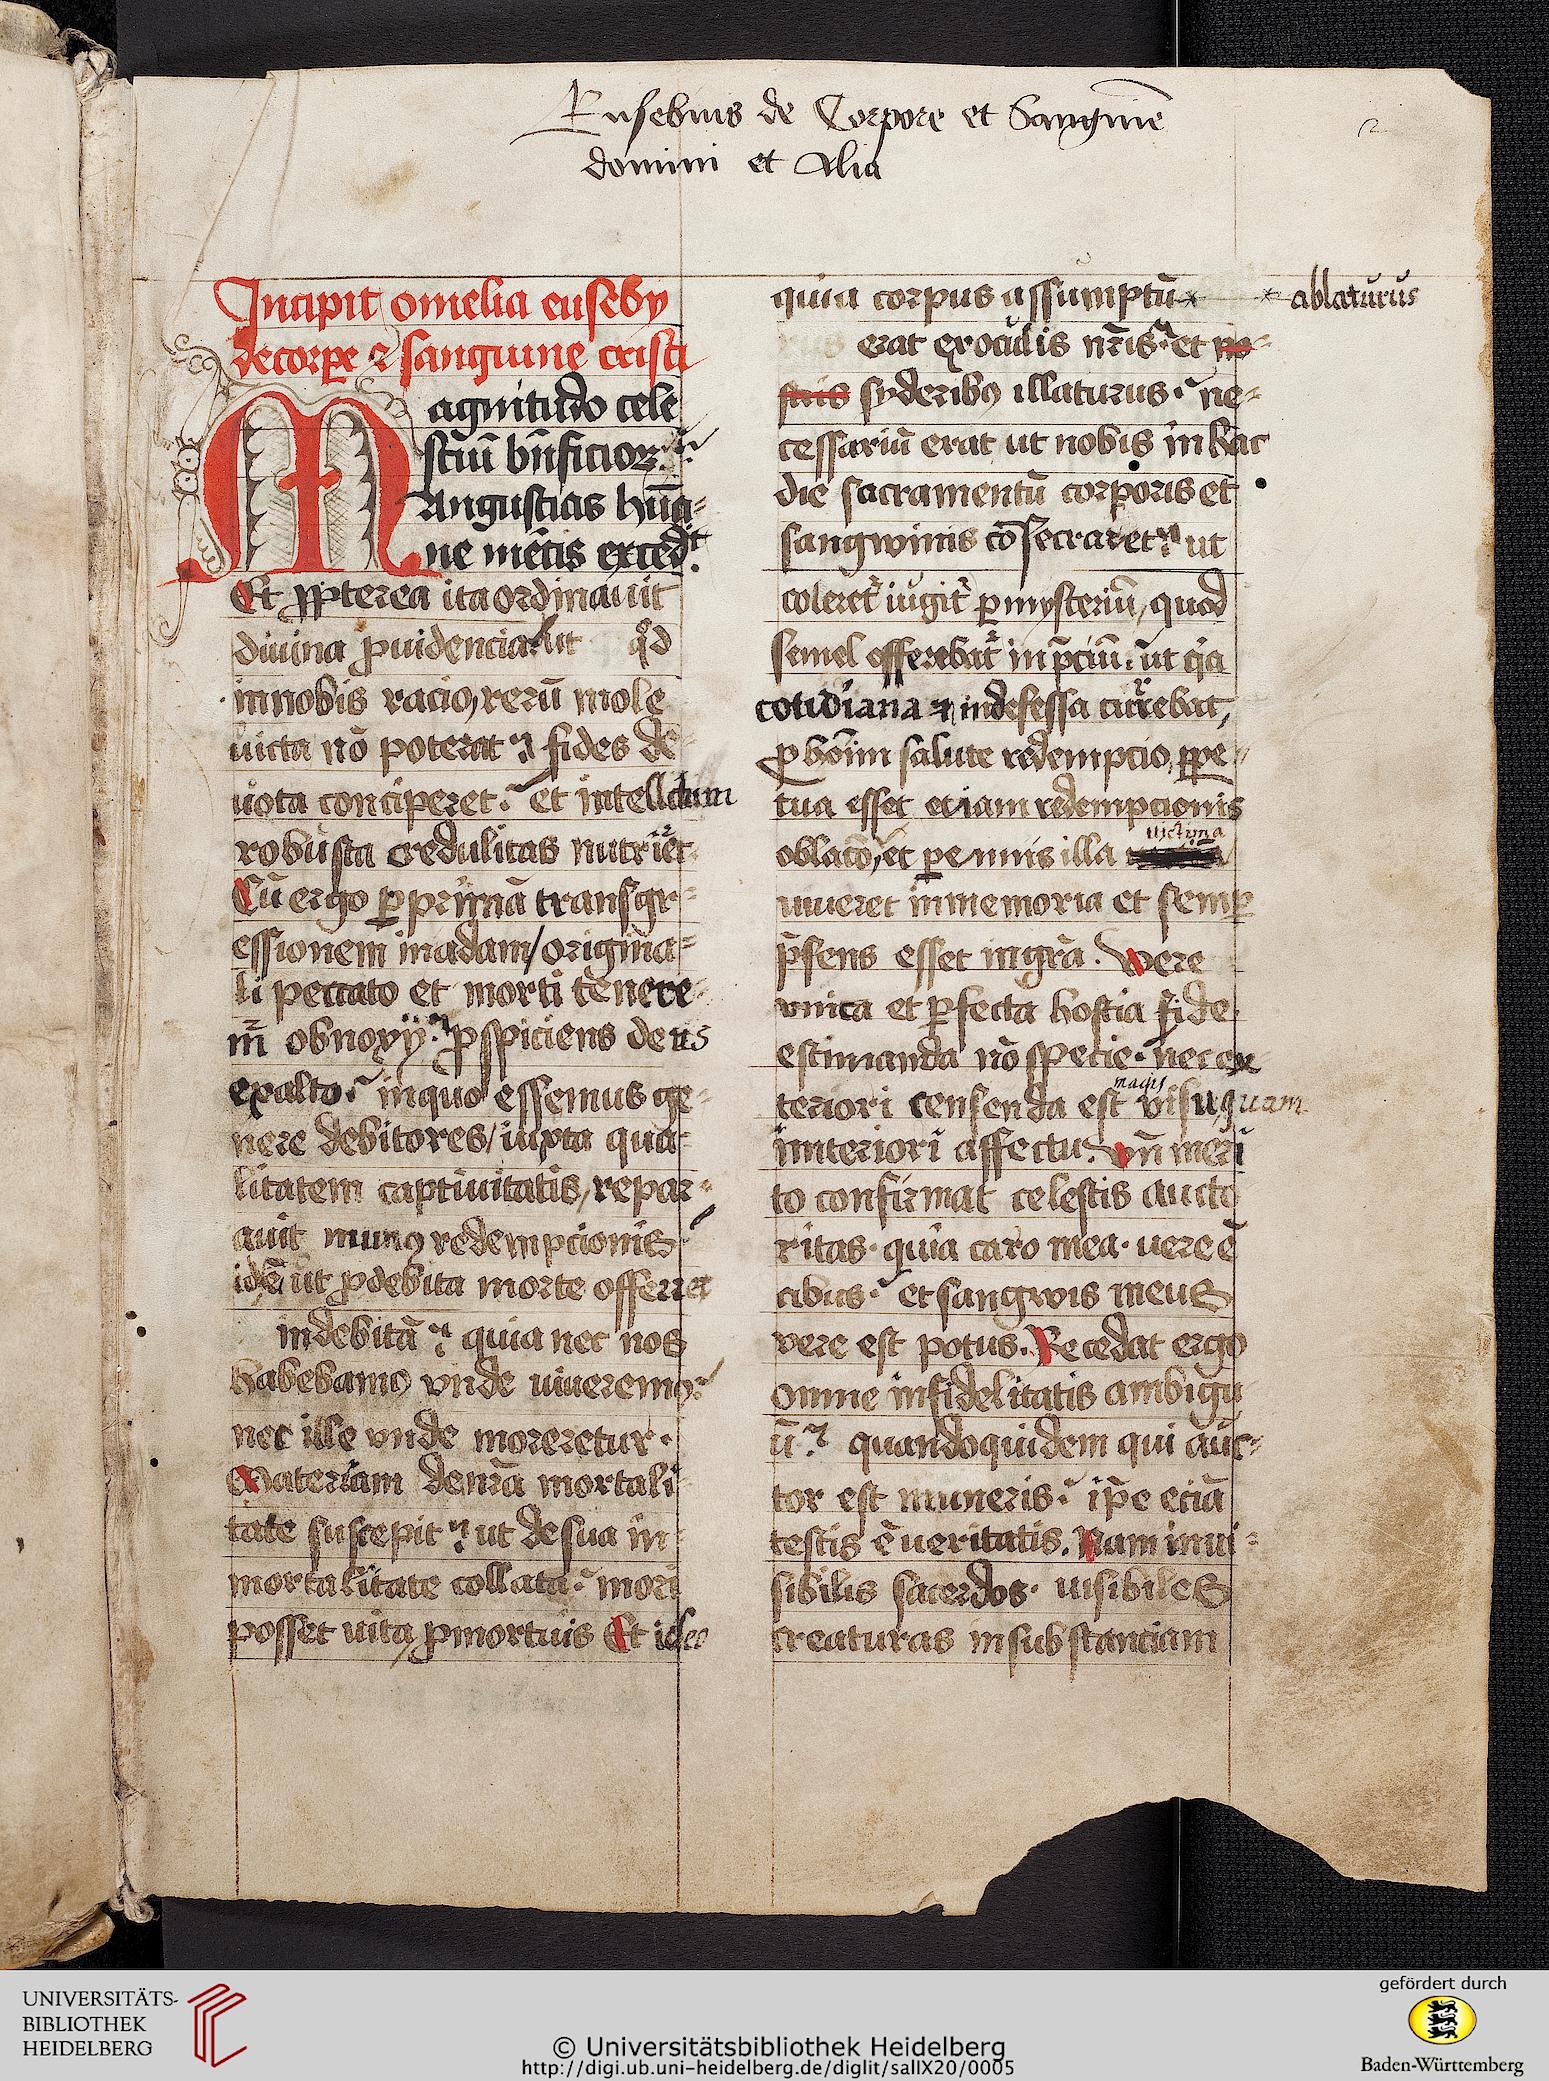 Eusebius de Corpore et Sanguinē
domini et Alia
2
Incipit omelia euseby
de corpe ⁊ sanguine cristi
Magnitudo cele
stiū bn̄ficior
Angustias hūa-
ne mētis exced't.
Et ꝓpterea ita ordinauit
diuina ꝓuidencia ut qd
in nobis racio, rerū mole
uicta nō poterat fides de-
uota conciperet. et intellectum
robusta credulitas nutriēt.
Cū ergo ꝑ primā transgr-
essionem in adam/origina-
li peccato et morti tenere-
mr̄ obnoxÿ. ꝓspiciens deus
ex alto. in quo essemus ge-
nere debitores/iuxta qua-
litatem captiuitatis, repar-
auit munꝰ redempcionis
idē ut ꝓ debita morte offerret
indebitā quia nec nos
habebamꝰ vnde uiueremꝰ
nec ille vnde moreretur.
Materiam de nr̄a mortali-
tate suscepit ut de sua in-
mortalitate collata. mori
posset uita, ꝓ mortuis Et ideo
quia corpus assumptū * * ablaturus
erat ex oculis nr̄is. et
syderibꝰ illaturus. ne-
cessariū erat ut nobis in hac
die sacramentū corporis et
sangwinis cōsecraret ut
coleret' iugit' ꝑ mysteriū, quod
semel offerebat' in p̄ciū. ut qa
cotidiana ⁊ indefessa currebat,
ꝓ hoīm salute redempcio, ꝑpe-
tua esset etiam redempcionis
victima
oblacō, et perennis illa
uiueret in memoria et semꝑ
p̄sens esset in gr̄a. Vere
vnica et ꝑfecta hostia fide
estimanda nō specie. nec ex
magis
teriori censenda est visu, quam
interiori affectu. vn̄ meri
to confirmat celestis aucto
ritas. quia caro mea. uere ē
cibus. et sangwis meus
vere est potus. Recedat ergo
omne infidelitatis ambigu
ū quandoquidem qui auc-
tor est muneris. ip̄e eciā
testis ē ueritatis. Nam inui-
sibilis sacerdos. uisibiles
creaturas in substanciam
UNIVERSITÄTS-
BIBLIOTHEK
HEIDELBERG
© Universitätsbibliothek Heidelberg
http://digi.ub.uni-heidelberg.de/diglit/salIX20/0005
gefördert durch
Baden-Württemberg